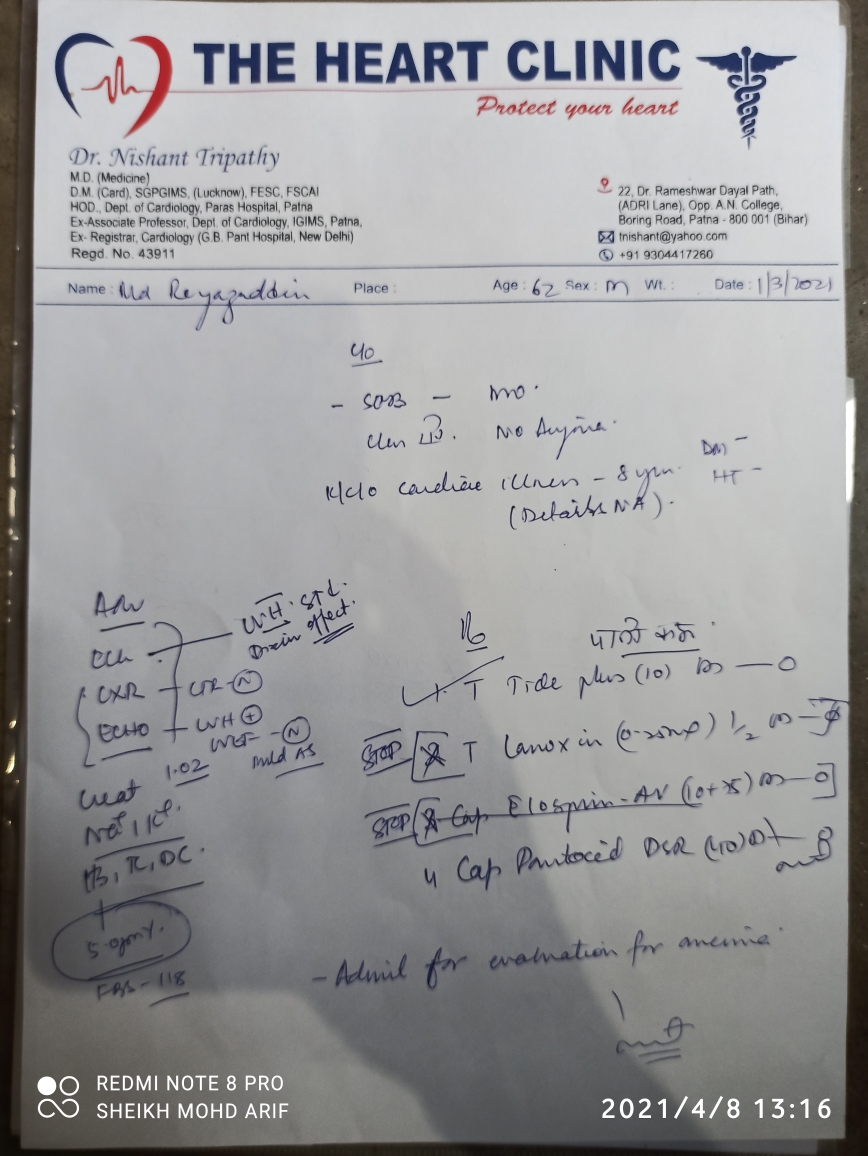 THE HEART CLINIC
Protect your heart
Dr. Nishant Tripathy
M.D. (Medicine)
D.M. (Card), SGPGIMS, (Lucknow), FESC, FSCAI
HOD., Dept. of Cardiology, Paras Hospital, Patna
Ex-Associate Professor, Dept. of Cardiology, IGIMS, Patna,
Ex- Registrar, Cardiology (G.B. Pant Hospital, New Delhi)
Regd. No. 43911
22, Dr. Rameshwar Dayal Path,
(ADRI Lane), Opp. A.N. College,
Boring Road, Patna - 800 001 (Bihar)
tnishant@yahoo.com
+91 9304417260
Name : Md Reyazuddin Place : Age : 62 Sex : M Wt. : Date : 1/3/2021
c/o
- SOB -
No Angina.
K/c/o cardiac illness - 8 yrs.
(Details NA).
DM -
HT -
Adv
ECG
LVH. STd.
effect.
CXR - CTR - N
ECHO - LVH +
LVEF - N
mild AS
Creat 1.02
Na+ / K+
Hb, TC, DC.
FBS - 118
Rx
T Tide plus (10)
STOP T Lanoxin 1/2
STOP Cap Elosprin-AV
Cap Pantocid DSR (40)
- Admit for evaluation for anemia
REDMI NOTE 8 PRO
SHEIKH MOHD ARIF
2021/4/8 13:16